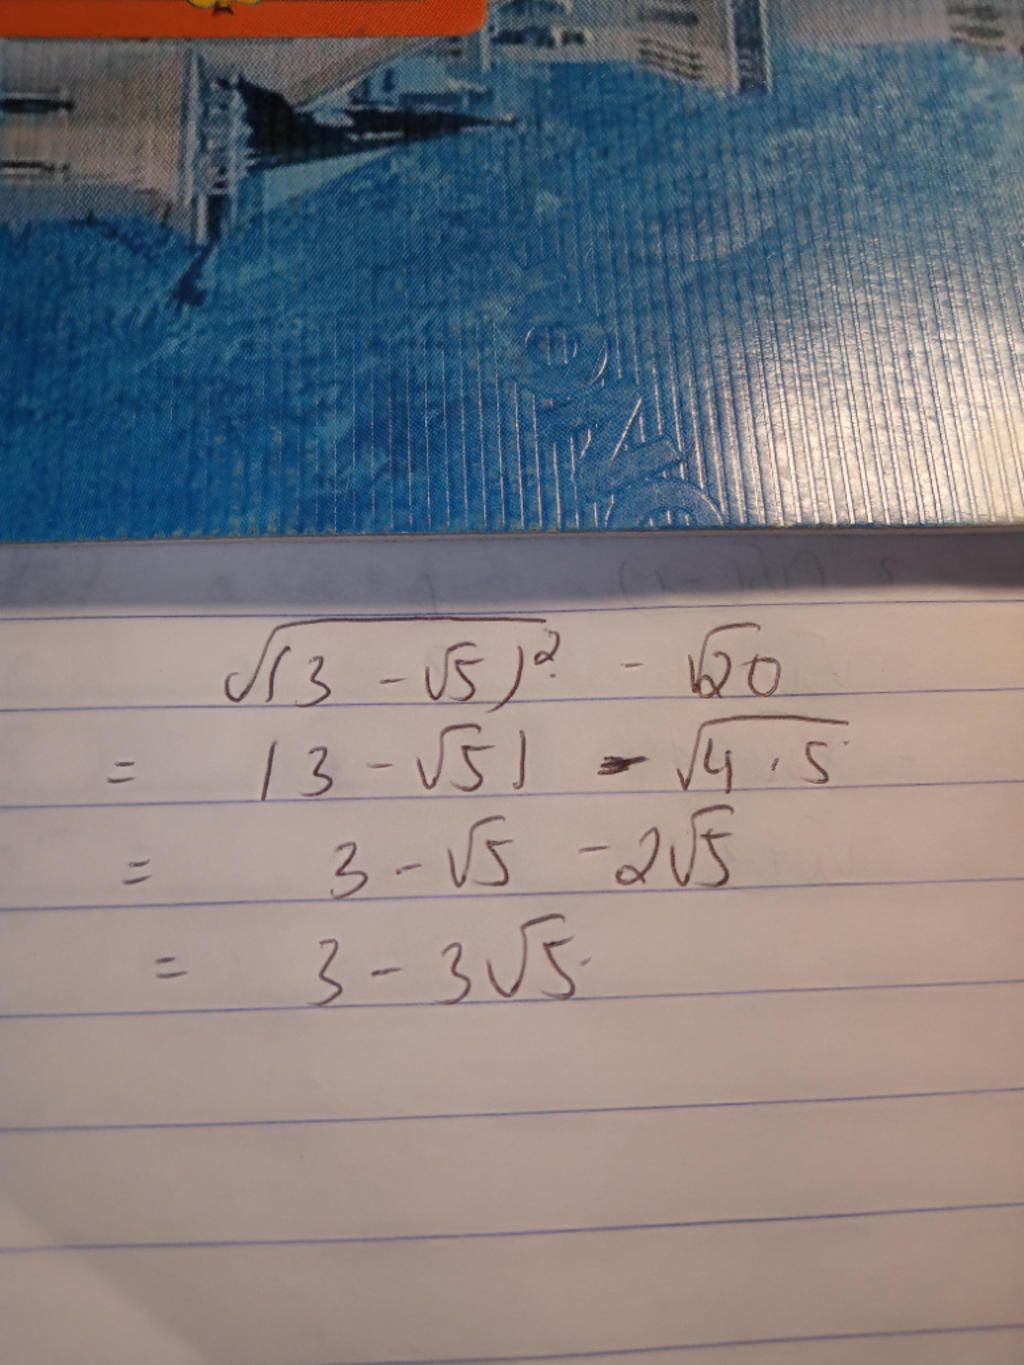 √(3 - √5)² - √20
= |3 - √5| - √4 . 5
= 3 - √5 - 2√5
= 3 - 3√5